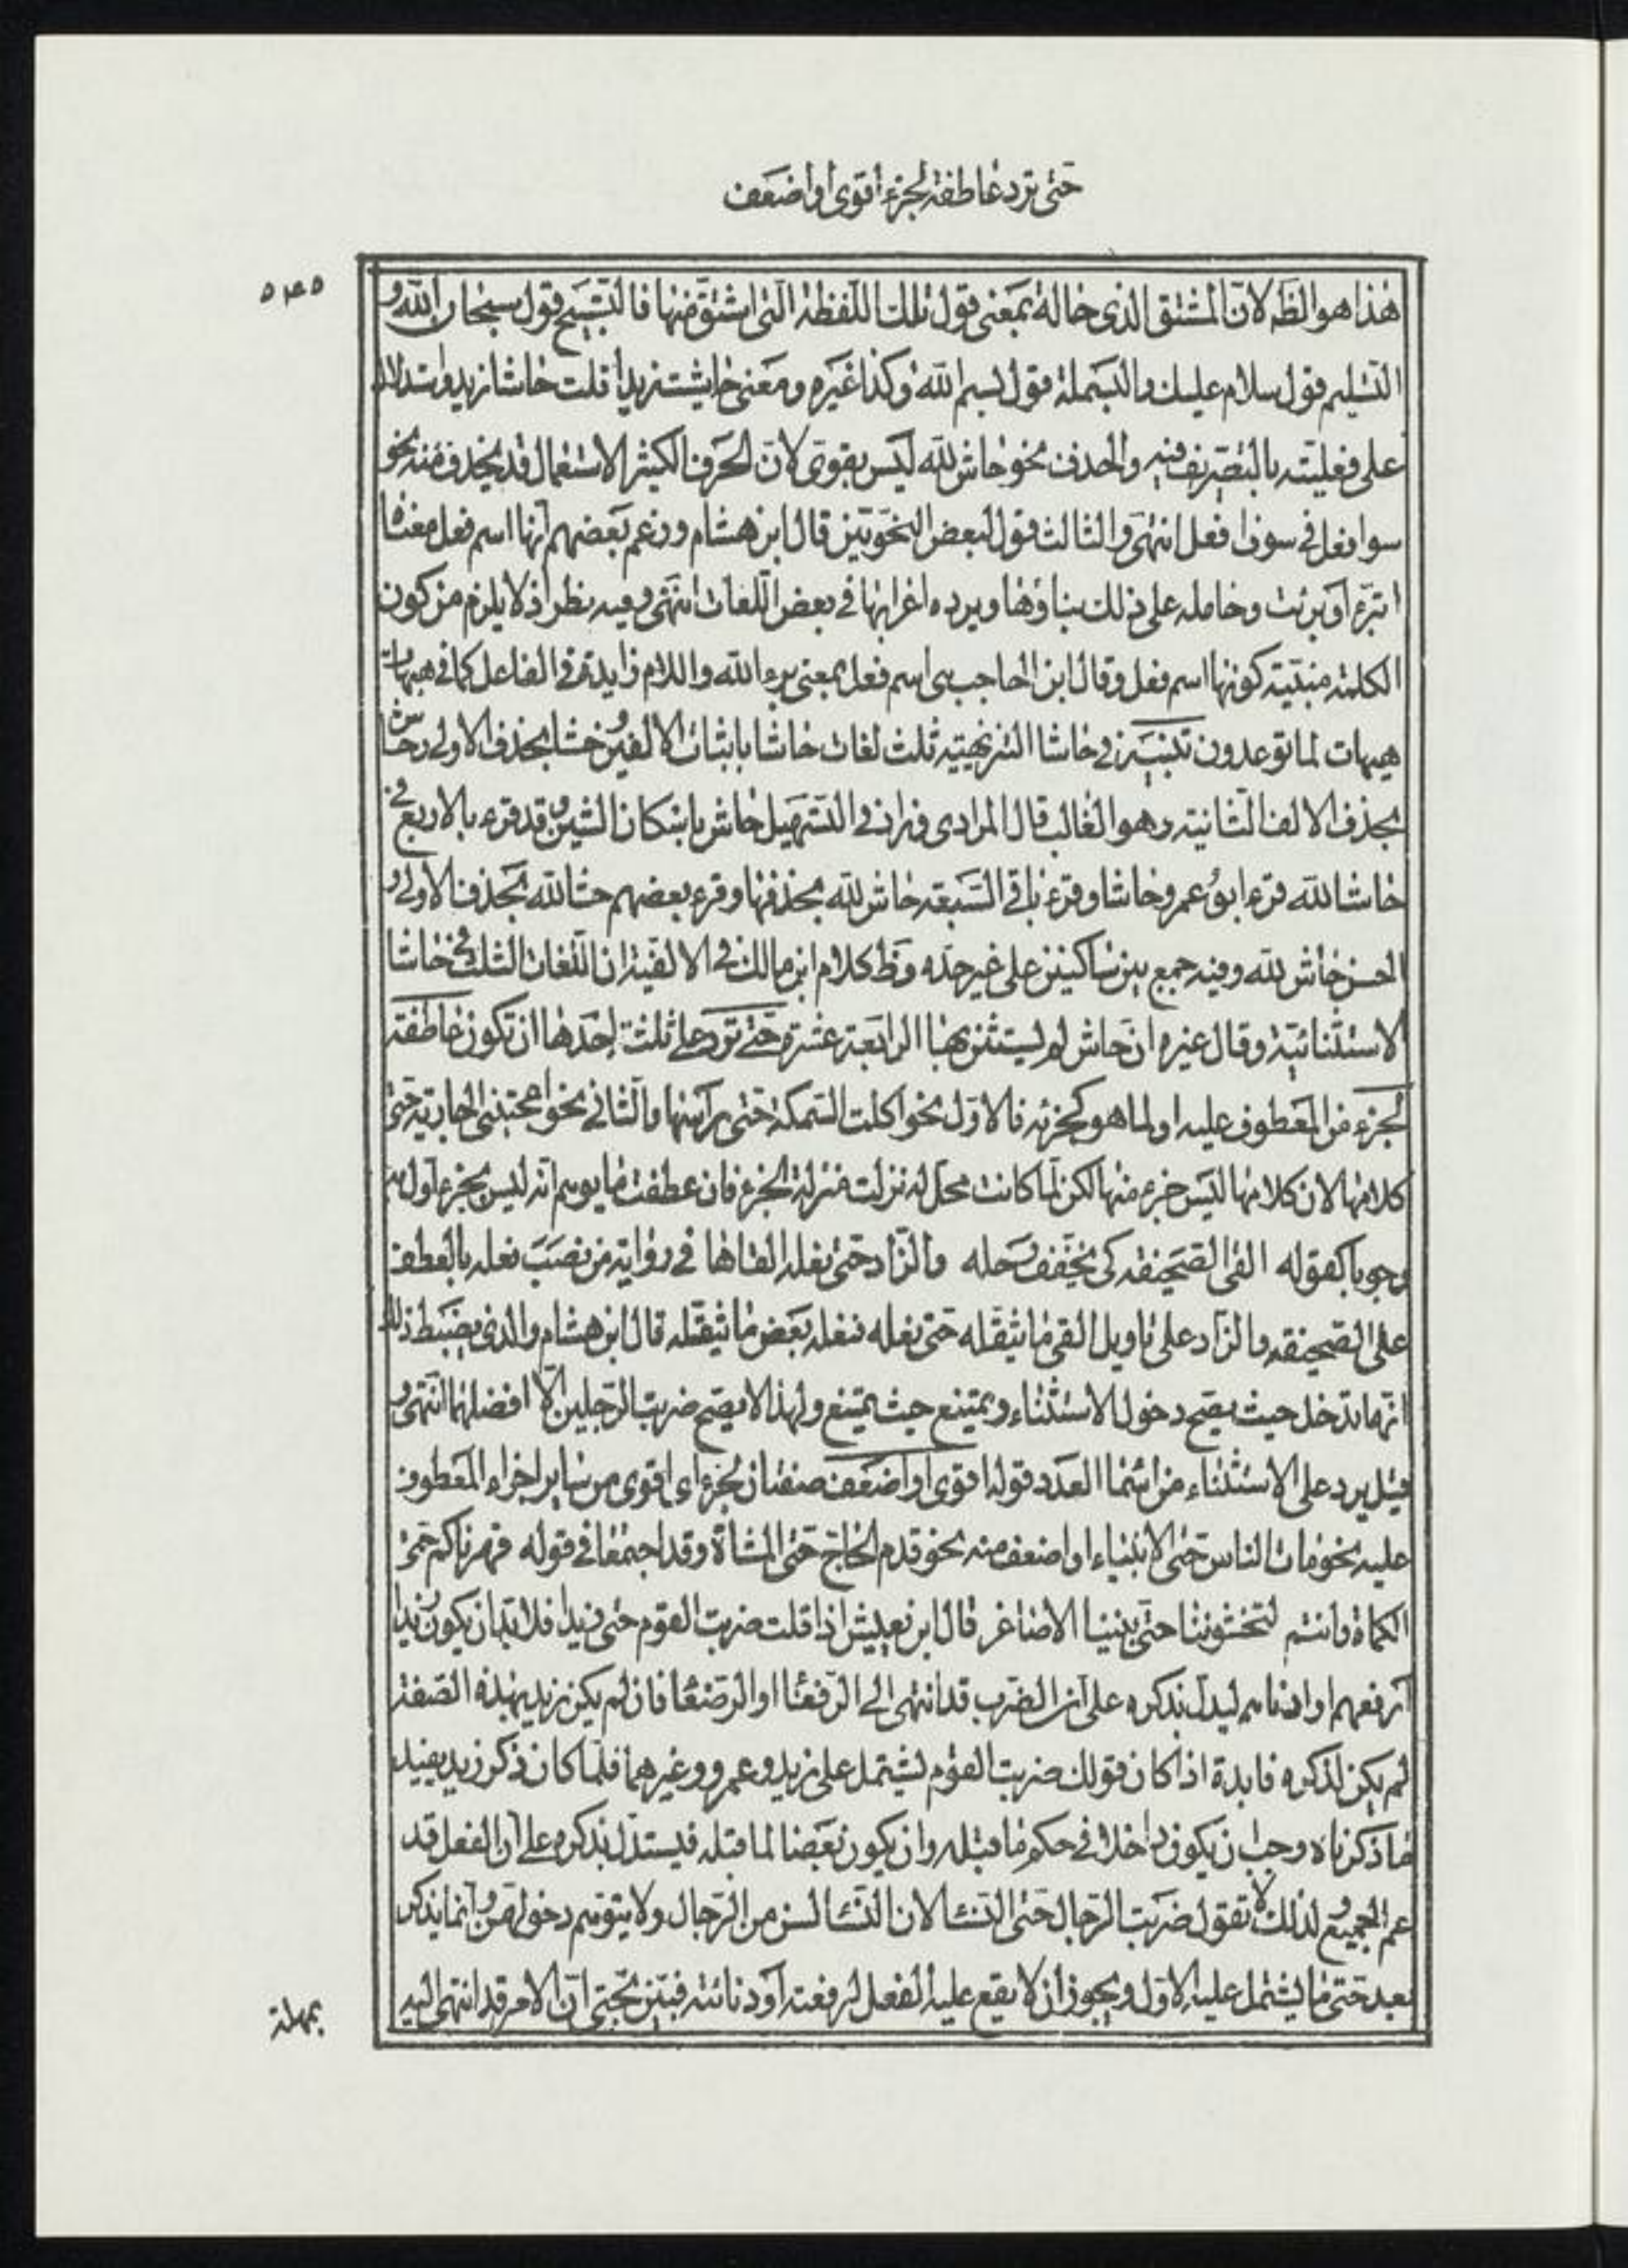 حتى ترد عاطفة لجزء أقوى او اضعف
٥٤٥
هذا هو الظ لان المشتق الذي حاله بمعنى قول تلك اللفظة التي اشتق منها فالتسبيح قول سبحان الله و
التسليم قول سلام عليك والبسملة قول بسم الله وكذا غيره ومعنى حاشيت زيدا قلت حاشا زيد واستدلال
على فعليته بالتصريف فيه والحذف نحو حاش لله ليس بقوي لان الحرف الكثير الاستعمال قد يحذف منه نحو
سو افعل في سوف افعل انتهى والثالث قول لبعض النحويين قال ابن هشام وزعم بعضهم انها اسم فعل معناه
اتبرء او برئت وحامله على ذلك بناؤها ويرده اعرابها في بعض اللغات انتهى وفيه نظر اذ لا يلزم من كون
الكلمة مبنية كونها اسم فعل وقال ابن الحاجب هي اسم فعل بمعنى برء الله واللام زايدة في الفاعل كما في هيهات
هيهات لما توعدون تنبيه في حاشا التنزيهية ثلث لغات حاشا باثبات الالفين وحشا بحذف الاولى وحاش
بحذف الالف الثانية وهو الغالب قال المرادي وزاد في التسهيل حاش باسكان الشين وقد قرء بالاربع في
حاشا لله قرء ابو عمرو حاشا وقرء باقي السبعة حاش لله بحذفها وقرء بعضهم حشا لله بحذف الاولى و
الحسن حاش لله وفيه جمع بين ساكنين على غير حده وظ كلام ابن مالك في الالفية ان اللغات الثلث في حاشا
الاستثنائية وقال غيره ان حاش لم يستثن بها الرابعة عشرة حتى ترد على ثلثة احدها ان تكون عاطفة
لجزء من المعطوف عليه او لما هو كجزئه فالاول نحو اكلت السمكة حتى رأسها والثاني نحو اعجبتني الجارية حتى
كلامها لان كلامها ليس جزء منها لكن لما كانت محل له نزلت منزلة الجزء فان عطفت ما يوهم انه ليس بجزء اول به
وجوبا كقوله القى الصحيفة كي يخفف رحله والزاد حتى نعله القاها في رواية من نصب نعله بالعطف
على الصحيفة والزاد على تاويل القى ما يثقله حتى نعله فنعله بعض ما يثقله قال ابن هشام والذي يضبط ذلك
انها تدخل حيث يصح دخول الاستثناء ويمتنع حيث يمتنع ولهذا لا يصح ضربت الرجلين الا افضلهما انتهى و
قيل يرد على الاستثناء من اسماء العدد قوله اقوى او اضعف صفتان لجزء اي اقوى من ساير اجزاء المعطوف
عليه نحو مات الناس حتى الانبياء او اضعف منه نحو قدم الحاج حتى المشاة وقد اجتمعا في قوله قهرناكم حتى
الكماة فانتم لتخشوننا حتى بنينا الاصاغر قال ابن يعيش اذا قلت ضربت القوم حتى زيدا فلا بد ان يكون زيدا
ارفعهم او ادناهم ليدل بذكره على ان الضرب قد انتهى الى الرفعاء او الوضعاء فان لم يكن زيد بهذه الصفة
لم يكن لذكره فايدة اذا كان قولك ضربت القوم يشتمل على زيد وعمرو وغيرهما فلما كان ذكر زيد يفيد
ما ذكرناه وجب ان يكون داخلا في حكم ما قبله وان يكون بعضا لما قبله فيستدل بذكره على ان الفعل قد
عم الجميع ولذلك لا تقول ضربت الرجال حتى النساء لان النساء لسن من الرجال ولا يتوهم دخولهن وانما يذكر
بعد حتى ما يشتمل عليه الاول ويجوز ان لا يقع عليه الفعل لرفعته او دنائته فبين بحتى ان الامر قد انتهى اليه
بمهلة